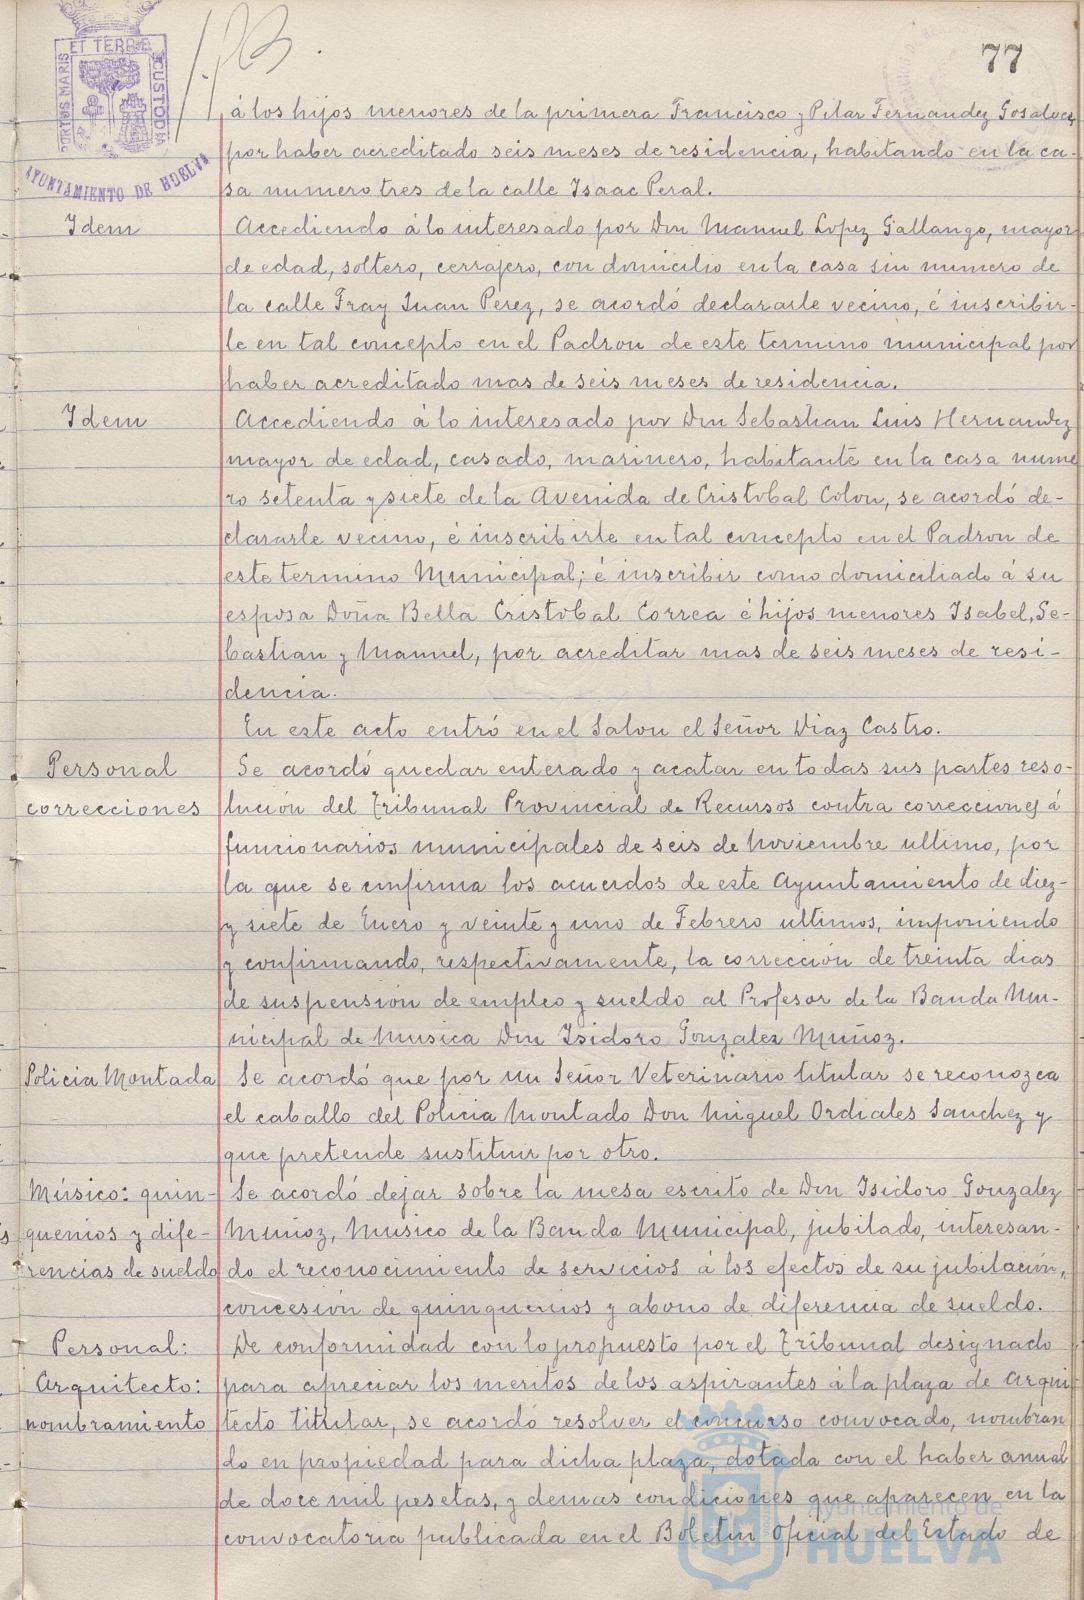 77
PORTUS MARIS ET TERRE CUSTODIA
AYUNTAMIENTO DE HUELVA
á los hijos menores de la primera Francisco y Pilar Fernandez Gosalvez,
por haber acreditado seis meses de residencia, habitando en la ca-
sa numero tres de la calle Isaac Peral.
Idem
Accediendo á lo interesado por Don Manuel Lopez Gallango, mayor
de edad, soltero, cerrajero, con domicilio en la casa sin numero de
la calle Fray Juan Perez, se acordó declararle vecino, é inscribir-
le en tal concepto en el Padron de este termino municipal por
haber acreditado mas de seis meses de residencia.
Idem
Accediendo á lo interesado por Don Sebastian Luis Hernandez
mayor de edad, casado, marinero, habitante en la casa nume
ro setenta y siete de la Avenida de Cristobal Colon, se acordó de-
clararle vecino, é inscribirle en tal concepto en el Padron de
este termino Municipal; é inscribir como domiciliado á su
esposa Doña Bella Cristobal Correa é hijos menores Isabel, Se-
bastian y Manuel, por acreditar mas de seis meses de resi-
dencia.
En este acto entró en el Salon el Señor Diaz Castro.
Personal
correcciones
Se acordó quedar enterado y acatar en todas sus partes reso-
lución del Tribunal Provincial de Recursos contra correcciones á
funcionarios municipales de seis de Noviembre ultimo, por
la que se confirma los acuerdos de este Ayuntamiento de diez-
y siete de Enero y veinte y uno de Febrero ultimos, imponiendo
y confirmando, respectivamente, la corrección de treinta dias
de suspensión de empleo y sueldo al Profesor de la Banda Mu-
nicipal de Musica Don Isidoro Gonzalez Muñoz.
Policia Montada
Se acordó que por un Señor Veterinario titular se reconozca
el caballo del Policia Montado Don Miguel Ordiales Sanchez y
que pretende sustituir por otro.
Músico: quin-
quenios y dife-
rencias de sueldo
Se acordó dejar sobre la mesa escrito de Don Isidoro Gonzalez
Muñoz, Musico de la Banda Municipal, jubilado, interesan-
do el reconocimiento de servicios á los efectos de su jubilación,
concesión de quinquenios y abono de diferencia de sueldo.
Personal:
Arquitecto:
nombramiento
De conformidad con lo propuesto por el Tribunal designado
para apreciar los meritos de los aspirantes á la plaza de Arqui
tecto titular, se acordó resolver el concurso convocado, nombran
do en propiedad para dicha plaza, dotada con el haber anual
de doce mil pesetas, y demas condiciones que aparecen en la
convocatoria publicada en el Boletin Oficial del Estado de
Ayuntamiento de
HUELVA